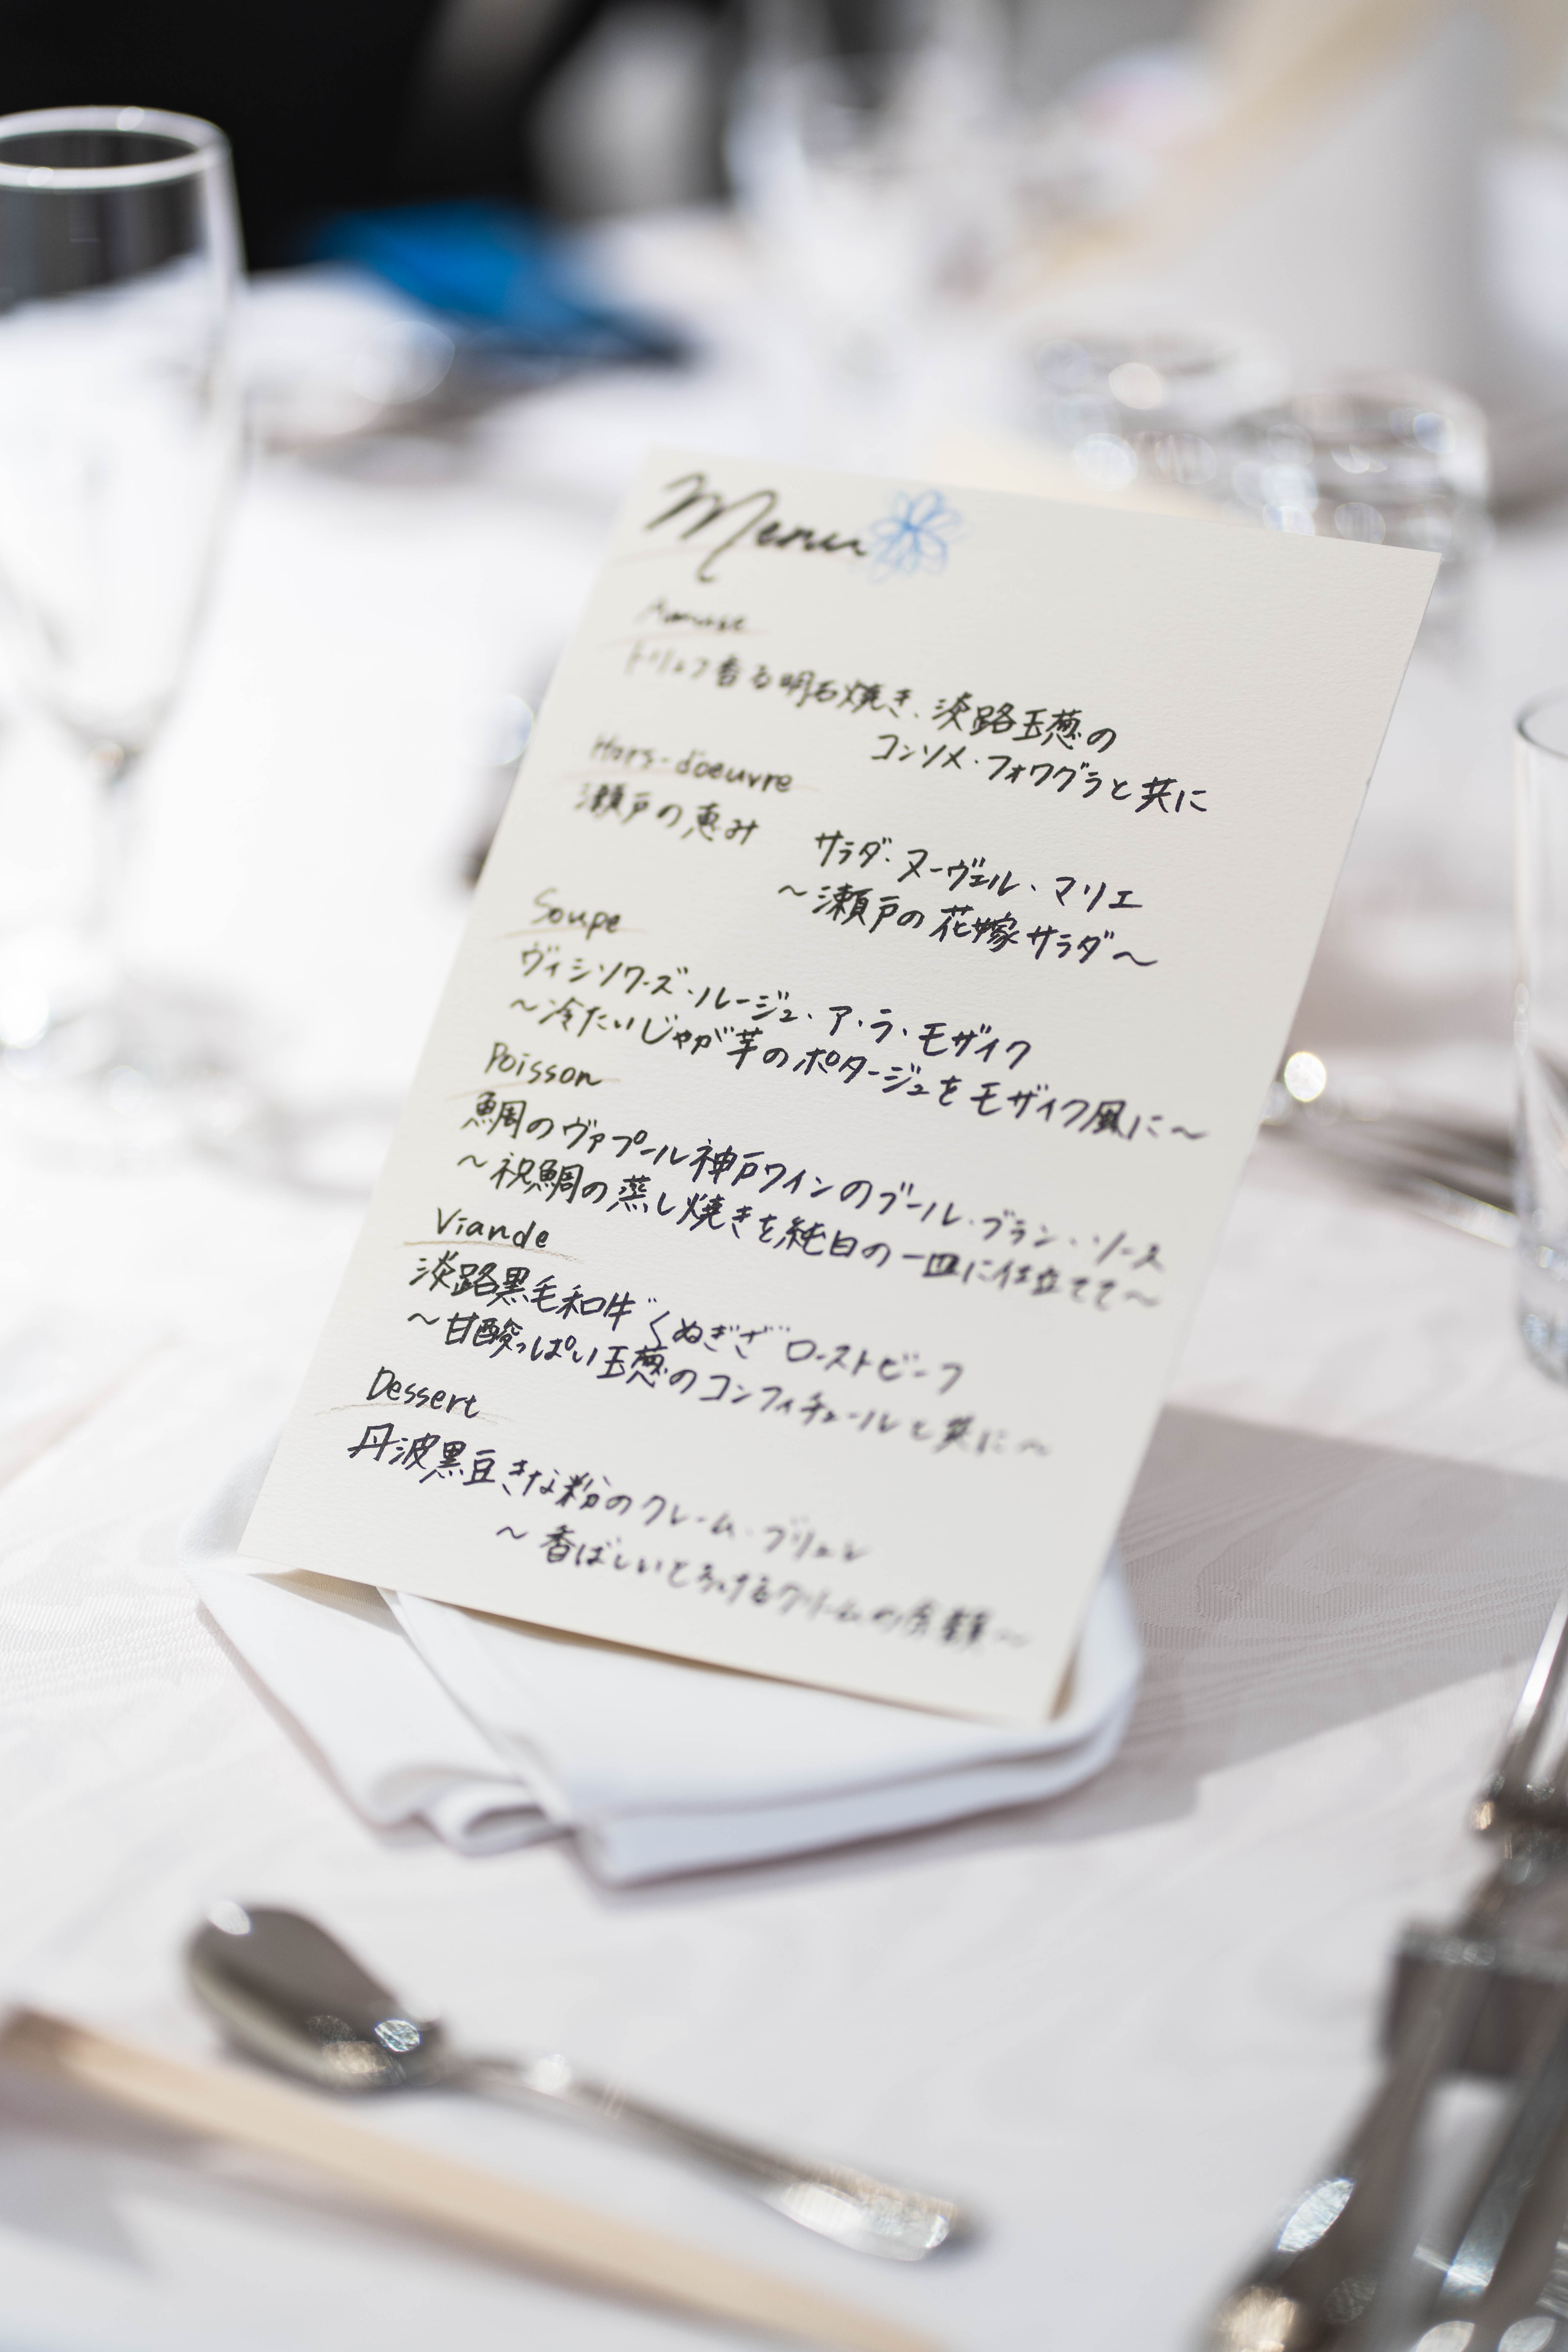 Menu
Amuse
トリュフ香る明石焼き、淡路玉葱の
コンソメ・フォワグラと共に
Hors-d'oeuvre
瀬戸の恵み サラダ・ヌーヴェル・マリエ
〜瀬戸の花嫁サラダ〜
Soupe
ヴィシソワーズ・ルージュ・ア・ラ・モザイク
〜冷たいじゃが芋のポタージュをモザイク風に〜
Poisson
鯛のヴァプール神戸ワインのブール・ブラン・ソース
〜祝鯛の蒸し焼きを純白の一皿に仕立てて〜
Viande
淡路黒毛和牛"くぬぎざ"ローストビーフ
〜甘酸っぱい玉葱のコンフィチュールと共に〜
Dessert
丹波黒豆きな粉のクレーム・ブリュレ
〜香ばしいとろけるクリームの〜